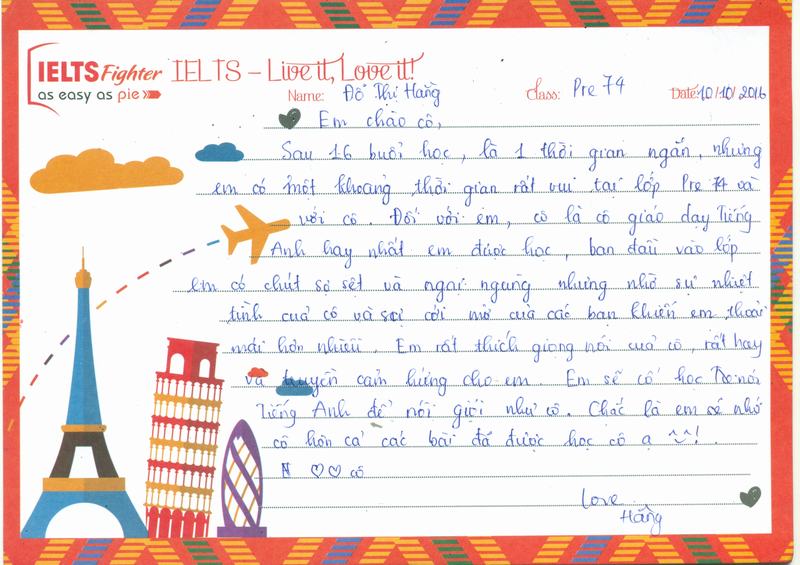 IELTS Fighter
as easy as pie
IELTS – Live it, Love it!
Name: Đỗ Thị Hằng Class: Pre 74 Date: 10/10/2016
Em chào cô,
Sau 16 buổi học, là 1 thời gian ngắn, nhưng
em có một khoảng thời gian rất vui tại lớp Pre 74 và
với cô. Đối với em, cô là cô giáo dạy Tiếng
Anh hay nhất em được học, ban đầu vào lớp
em có chút sợ sệt và ngại ngùng nhưng nhờ sự nhiệt
tình của cô và sự cởi mở của các bạn khiến em thoải
mái hơn nhiều. Em rất thích giọng nói của cô, rất hay
và truyền cảm hứng cho em. Em sẽ cố học nói
Tiếng Anh để nói giỏi như cô. Chắc là em sẽ nhớ
cô hơn cả các bài đã được học cô ạ ^^!.
N ♡♡ cô
Love
Hằng